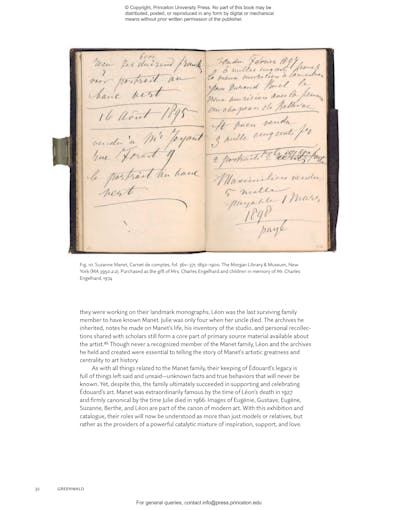 © Copyright, Princeton University Press. No part of this book may be
distributed, posted, or reproduced in any form by digital or mechanical
means without prior written permission of the publisher.
portrait au
banc vert
16 Août 1895
vendu à Mr
rue Forest 9
le portrait au banc
vert
Février 1897
vendu
Maximilien vendu
5 mille
payable 1 Mars
1898
payé
Fig. 10. Suzanne Manet, Carnet de comptes, fol. 36v–37r, 1892–1900. The Morgan Library & Museum, New
York (MA 3950 2.2). Purchased as the gift of Mrs. Charles Engelhard and children in memory of Mr. Charles
Engelhard, 1974
they were working on their landmark monographs, Léon was the last surviving family
member to have known Manet. Julie was only four when her uncle died. The archives he
inherited, notes he made on Manet's life, his inventory of the studio, and personal recollec-
tions shared with scholars still form a core part of primary source material available about
the artist. Though never a recognized member of the Manet family, Léon and the archives
he held and created were essential to telling the story of Manet's artistic greatness and
centrality to art history.
As with all things related to the Manet family, their keeping of Édouard's legacy is
full of things left said and unsaid—unknown facts and true behaviors that will never be
known. Yet, despite this, the family ultimately succeeded in supporting and celebrating
Édouard's art. Manet was extraordinarily famous by the time of Léon's death in 1927
and firmly canonical by the time Julie died in 1966. Images of Eugénie, Gustave, Eugène,
Suzanne, Berthe, and Léon are part of the canon of modern art. With this exhibition and
catalogue, their roles will now be understood as more than just models or relatives, but
rather as the providers of a powerful catalytic mixture of inspiration, support, and love.
GREENWALD
For general queries, contact info@press.princeton.edu